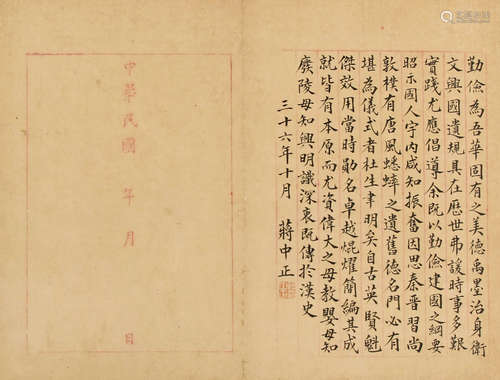 勤儉為吾華固有之美德禹墨治身衛
文興國遺規具在歷世弗諼時事多艱
實踐尤應倡導余既以勤儉建國之綱要
昭示國人宇內咸知振奮因思秦晉習尚
敦樸有唐風蟋蟀之遺舊德名門必有
堪為儀式者杜生聿明矣自古英賢魁
傑效用當時勛名卓越焜燿簡編其成
就皆有本原而尤資偉大之母教嬰母知
廢陵母知興明識深衷既傳於漢史
三十六年十月 蔣中正
中華民國 年 月 日